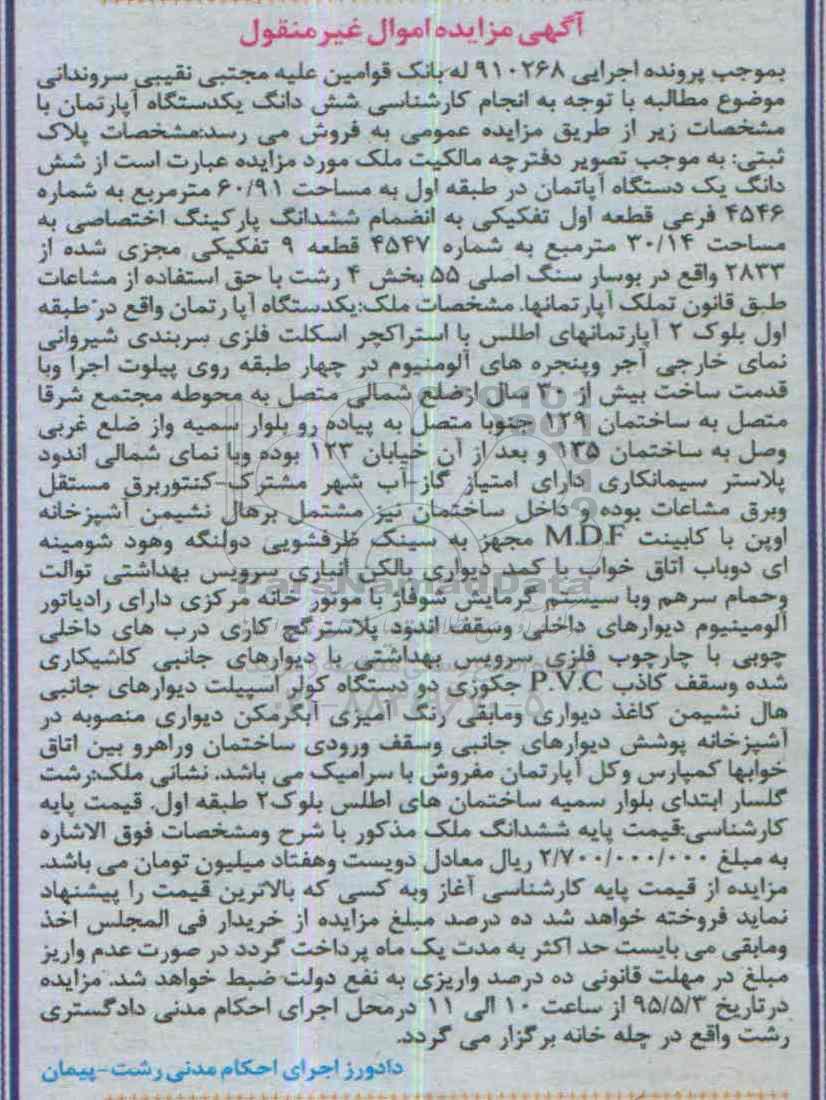 آگهی مزایده اموال غیر منقول
بموجب پرونده اجرایی ۹۱۰۲۶۸ له بانک قوامین علیه مجتبی نقیبی سروندانی
موضوع مطالبه با توجه به انجام کارشناسی شش دانگ یکدستگاه آپارتمان با
مشخصات زیر از طریق مزایده عمومی به فروش می رسد:مشخصات پلاک
ثبتی: به موجب تصویر دفترچه مالکیت ملک مورد مزایده عبارت است از شش
دانگ یک دستگاه آپاتمان در طبقه اول به مساحت ۶۰/۹۱ مترمربع به شماره
۴۵۴۶ فرعی قطعه اول تفکیکی به انضمام ششدانگ پارکینگ اختصاصی به
مساحت ۳۰/۱۴ مترمبع به شماره ۴۵۴۷ قطعه ۹ تفکیکی مجزی شده از
۲۸۳۳ واقع در بوسار سنگ اصلی ۵۵ بخش ۴ رشت با حق استفاده از مشاعات
طبق قانون تملک آپارتمانها. مشخصات ملک:یکدستگاه آپارتمان واقع در طبقه
اول بلوک ۲ آپارتمانهای اطلس با استراکچر اسکلت فلزی سربندی شیروانی
نمای خارجی آجر وپنجره های آلومنیوم در چهار طبقه روی پیلوت اجرا وبا
قدمت ساخت بیش از ۳۰ سال ازضلع شمالی متصل به محوطه مجتمع شرقا
متصل به ساختمان ۱۲۹ جنوبا متصل به پیاده رو بلوار سمیه واز ضلع غربی
وصل به ساختمان ۱۳۵ و بعد از آن خیابان ۱۲۳ بوده وبا نمای شمالی اندود
پلاستر سیمانکاری دارای امتیاز گاز-آب شهر مشترک-کنتوربرق مستقل
وبرق مشاعات بوده و داخل ساختمان نیز مشتمل برهال نشیمن آشپزخانه
اوپن با کابینت M.D.F مجهز به سینک ظرفشویی دولنگه وهود شومینه
ای دوباب اتاق خواب با کمد دیواری بالکن انباری سرویس بهداشتی توالت
وحمام سرهم وبا سیستم گرمایش شوفاژ با موتور خانه مرکزی دارای رادیاتور
آلومینیوم دیوارهای داخلی وسقف اندود پلاسترگچ کاری درب های داخلی
چوبی با چارچوب فلزی سرویس بهداشتی با دیوارهای جانبی کاشیکاری
شده وسقف کاذب P.V.C جکوزی دو دستگاه کولر اسپیلت دیوارهای جانبی
هال نشیمن کاغذ دیواری ومابقی رنگ آمیزی آبگرمکن دیواری منصوبه در
آشپزخانه پوشش دیوارهای جانبی وسقف ورودی ساختمان وراهرو بین اتاق
خوابها کمپارس وکل آپارتمان مفروش با سرامیک می باشد. نشانی ملک:رشت
گلسار ابتدای بلوار سمیه ساختمان های اطلس بلوک۲ طبقه اول. قیمت پایه
کارشناسی:قیمت پایه ششدانگ ملک مذکور با شرح ومشخصات فوق الاشاره
به مبلغ ۲/۷۰۰/۰۰۰/۰۰۰ ریال معادل دویست وهفتاد میلیون تومان می باشد.
مزایده از قیمت پایه کارشناسی آغاز وبه کسی که بالاترین قیمت را پیشنهاد
نماید فروخته خواهد شد ده درصد مبلغ مزایده از خریدار فی المجلس اخذ
ومابقی می بایست حد اکثر به مدت یک ماه پرداخت گردد در صورت عدم واریز
مبلغ در مهلت قانونی ده درصد واریزی به نفع دولت ضبط خواهد شد. مزایده
درتاریخ ۹۵/۵/۳ از ساعت ۱۰ الی ۱۱ درمحل اجرای احکام مدنی دادگستری
رشت واقع در چله خانه برگزار می گردد.
دادورز اجرای احکام مدنی رشت-پیمان
ParsNamadData